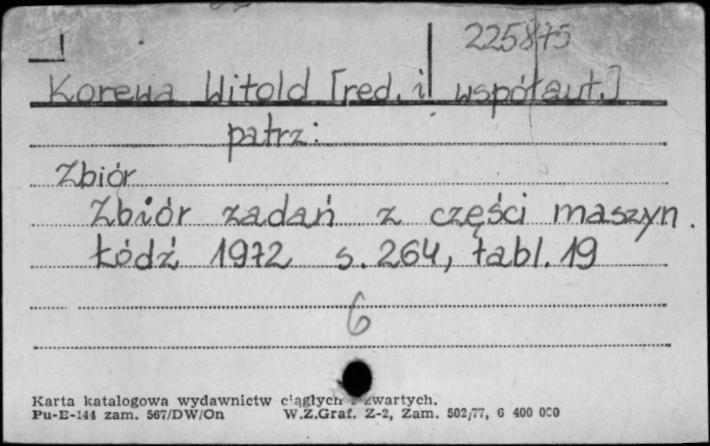 225875
Korewa Witold [red. i współaut.]
patrz:
Zbiór
Zbiór zadań z części maszyn.
Łódź 1972 s. 264, tabl. 19
6
Karta katalogowa wydawnictw ciągłych i zwartych.
Pu-E-144 zam. 567/DW/On W.Z.Graf. Z-2, Zam. 502/77, 6 400 000